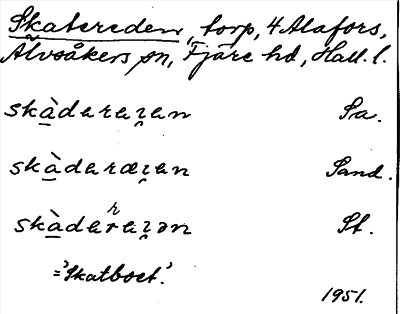 Skatereden, torp, 4 Alafors,
Alvsåkers sn, Fjäre hd, Hall. l.
skàdaraɀan Sa.
skàdaræɀan Sand.
skàdaraɀən St.
='Skatboet'.
1951.